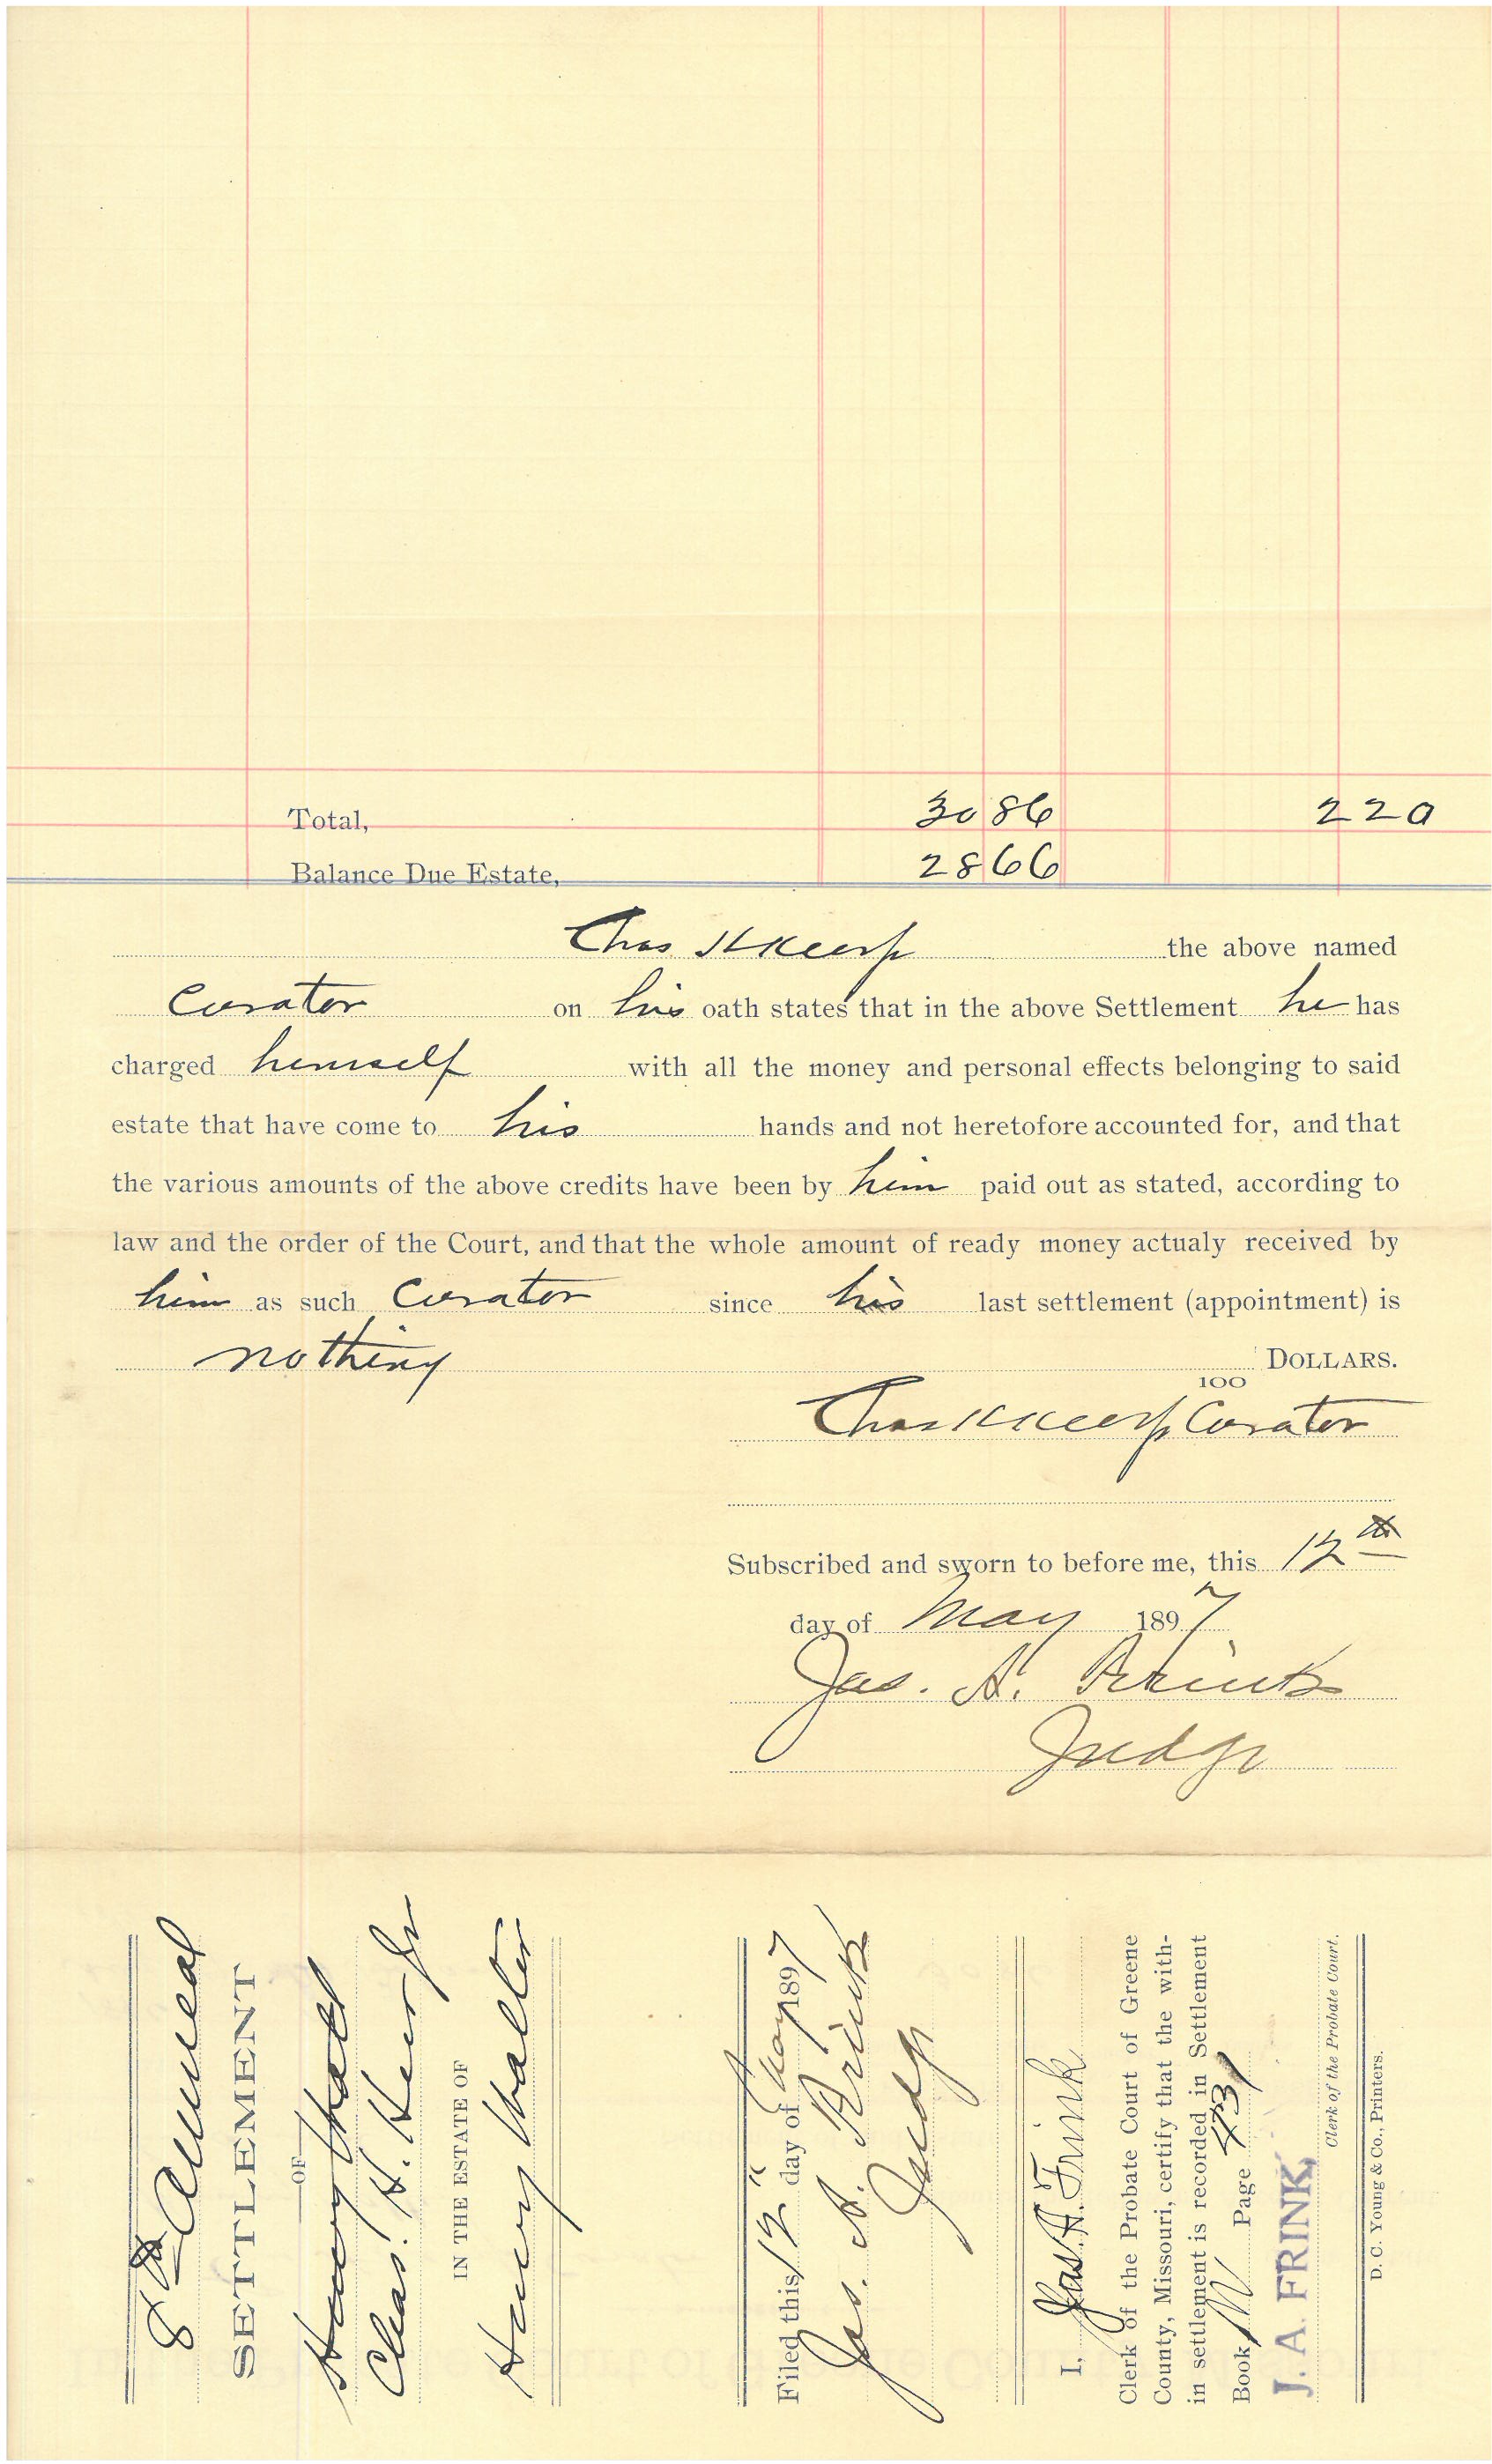 Total, 3086 220
Balance Due Estate, 2866
Chas the above named
Curator on his oath states that in the above Settlement he has
charged himself with all the money and personal effects belonging to said
estate that have come to his hands and not heretofore accounted for, and that
the various amounts of the above credits have been by him paid out as stated, according to
law and the order of the Court, and that the whole amount of ready money actualy received by
him as such Curator since his last settlement (appointment) is
nothing DOLLARS.
100
Chas Curator
Subscribed and sworn to before me, this 12th
day of May 1897
Jas. A. Frink
Judge
8th Annual
SETTLEMENT
OF
Chas. H.
IN THE ESTATE OF
Henry Walter
Filed this 12" day of May 1897
Jas. A. Frink
Judge
I, Jas. A. Frink
Clerk of the Probate Court of Greene
County, Missouri, certify that the with-
in settlement is recorded in Settlement
Book M Page 431
J. A. FRINK,
Clerk of the Probate Court.
D. C. Young & Co., Printers.